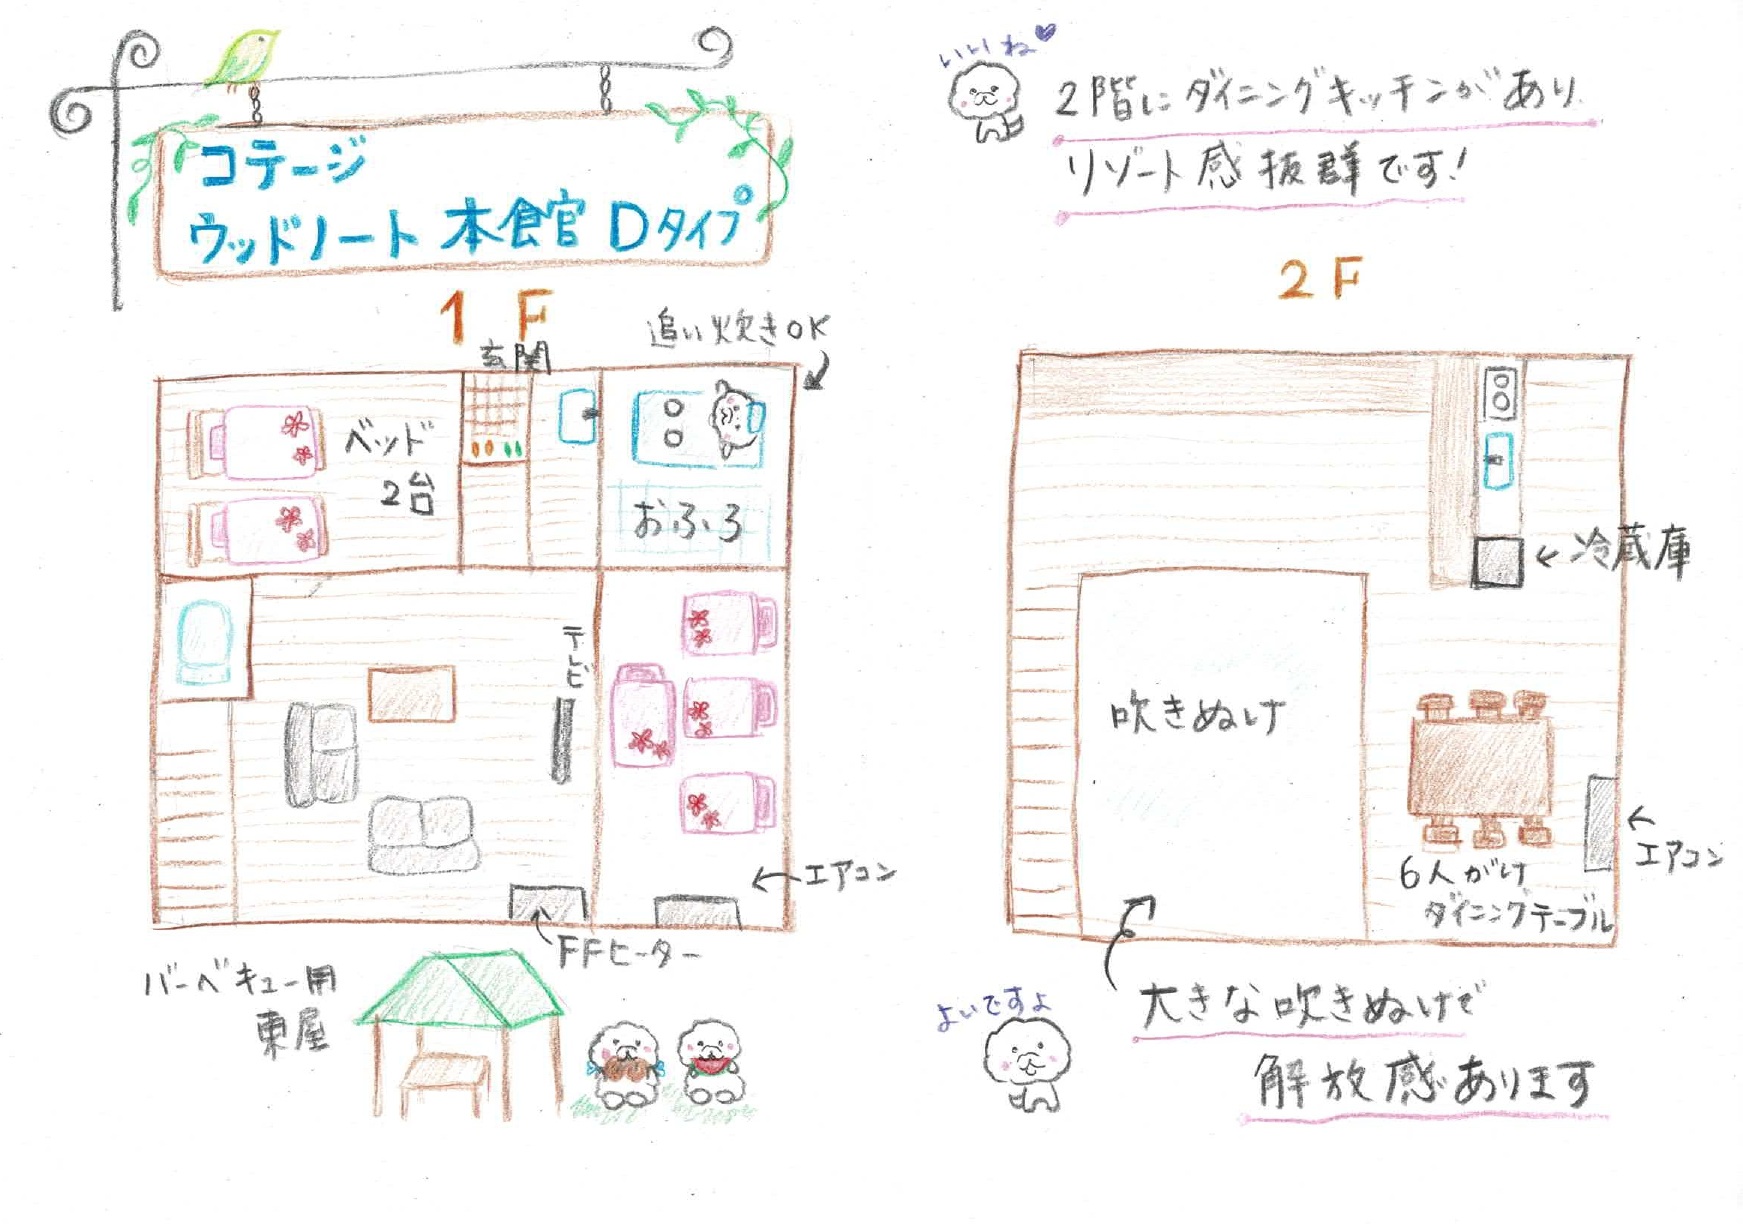 コテージ
ウッドノート 本館 Dタイプ
いいね
2階にダイニングキッチンがあり
リゾート感抜群です!
1F
2F
玄関
追い炊きOK
ベッド
2台
おふろ
テレビ
エアコン
FFヒーター
バーベキュー用
東屋
冷蔵庫
吹きぬけ
エアコン
6人がけ
ダイニングテーブル
よいですよ
大きな吹きぬけで
解放感あります